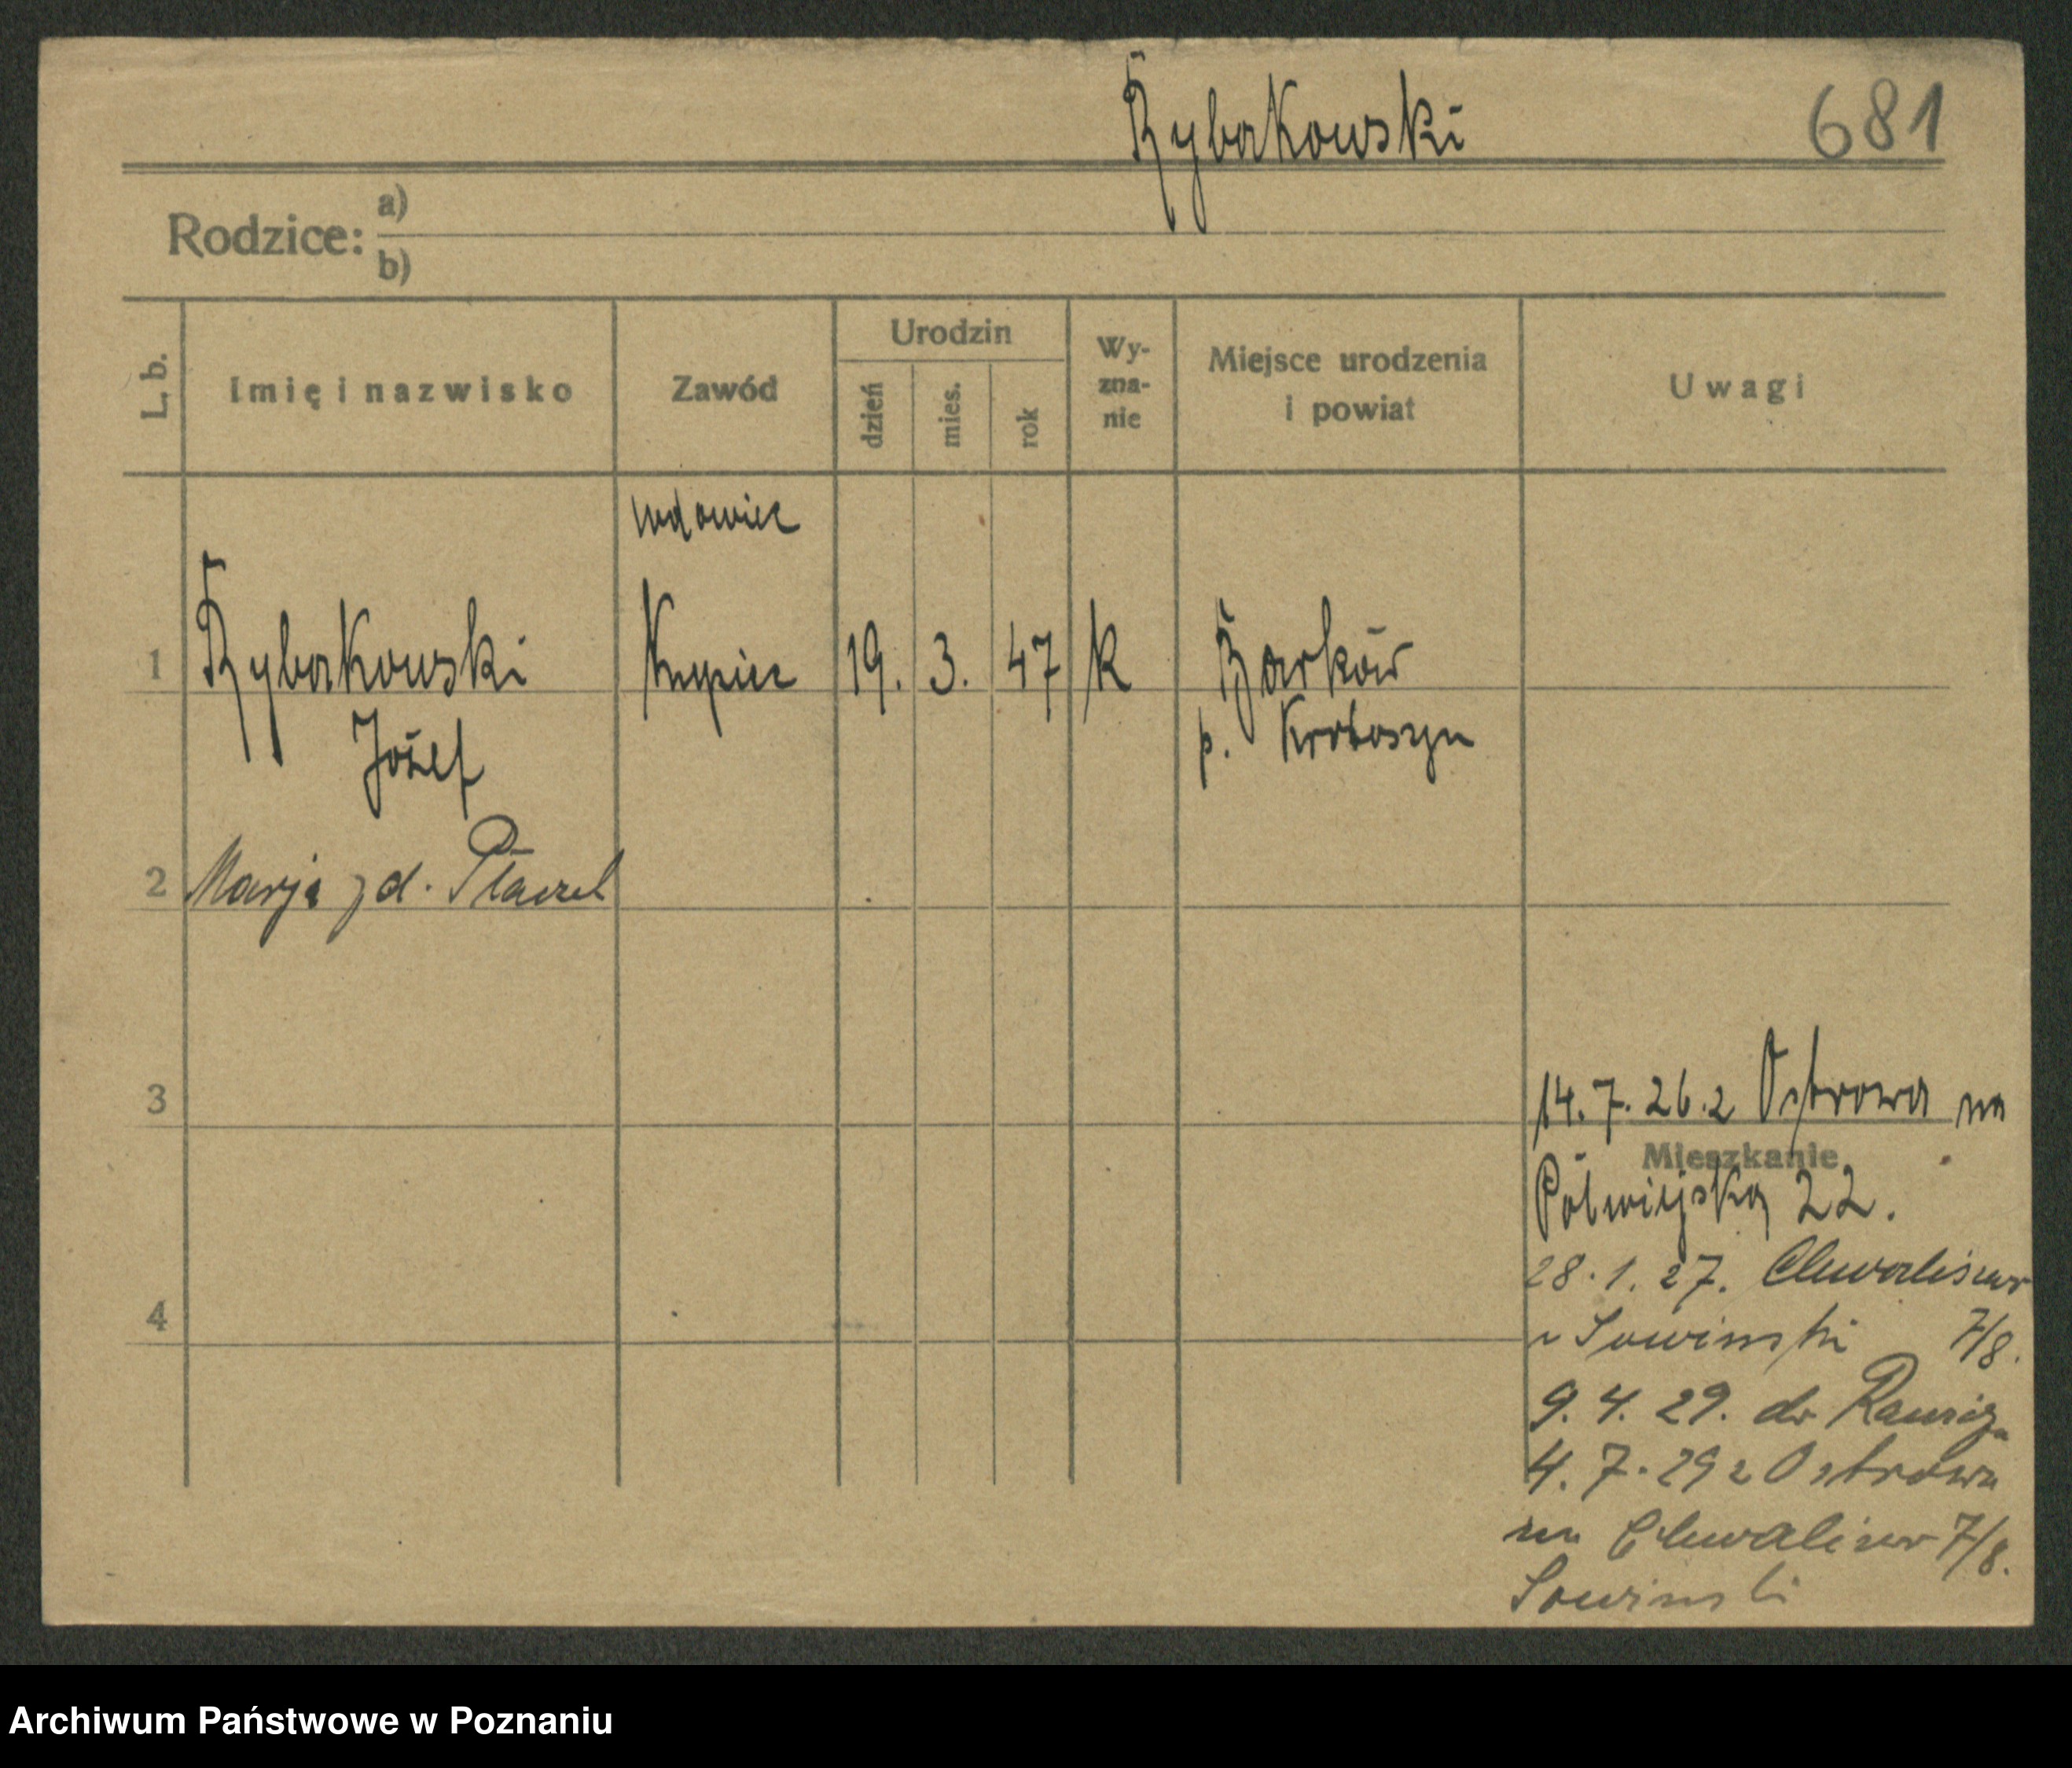 Rybakowski 681
Rodzice: a)
b)
L. b. Imię i nazwisko Zawód Urodzin dzień mies. rok Wy-zna-nie Miejsce urodzenia i powiat Uwagi
wdowiec
1 Rybakowski Kupiec 19. 3. 47 k
Józef p. Krotoszyn
2 Marja z d.
3
14.7.26. z Ostrowa na
Mieszkanie
Półwiejską 22.
28.1.27. Chwaliszewo
4
u Sowinski 7/8.
9.4.29. do
4.7.29 z Ostrowa
na Chwaliszewo 7/8.
Sowinski
Archiwum Państwowe w Poznaniu